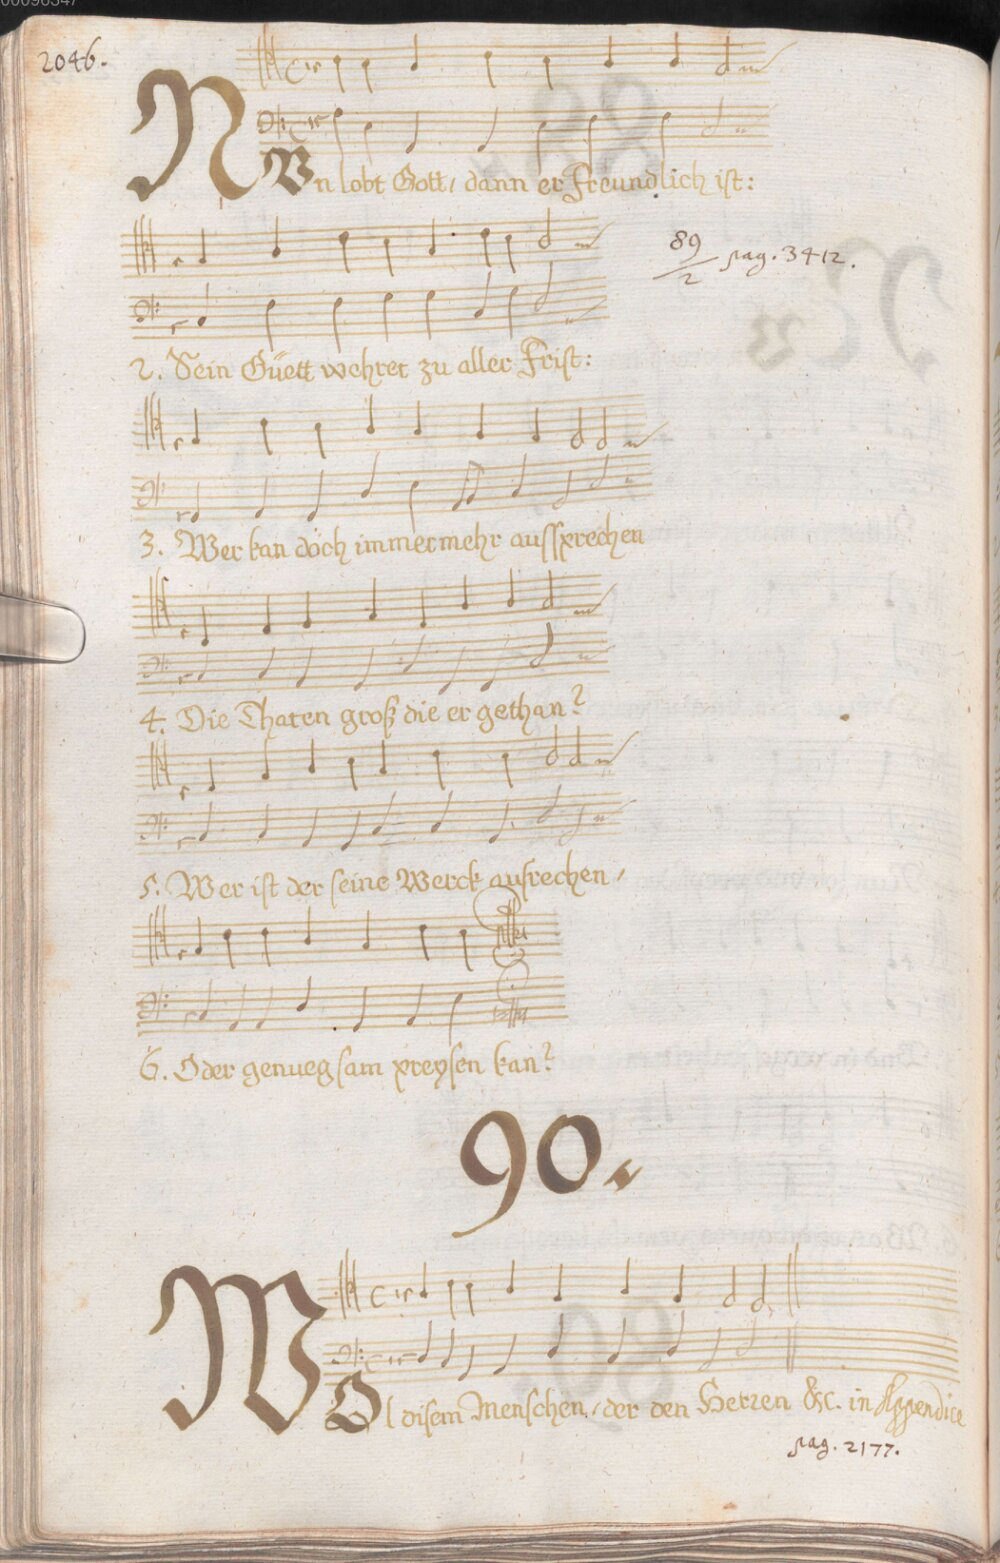 2046.
NUn lobt Gott, dann er Freundlich ist:
89/2 pag. 3412.
2. Sein Güett wehret zu aller Frist:
3. Wer kan doch immermehr aussprechen
4. Die Thaten groß die er gethan?
5. Wer ist der seine Werck ausrechen,
6. Oder genuegsam preysen kan?
90.
WOl disem Menschen, der den Herren &c. in Appendice
pag. 2177.